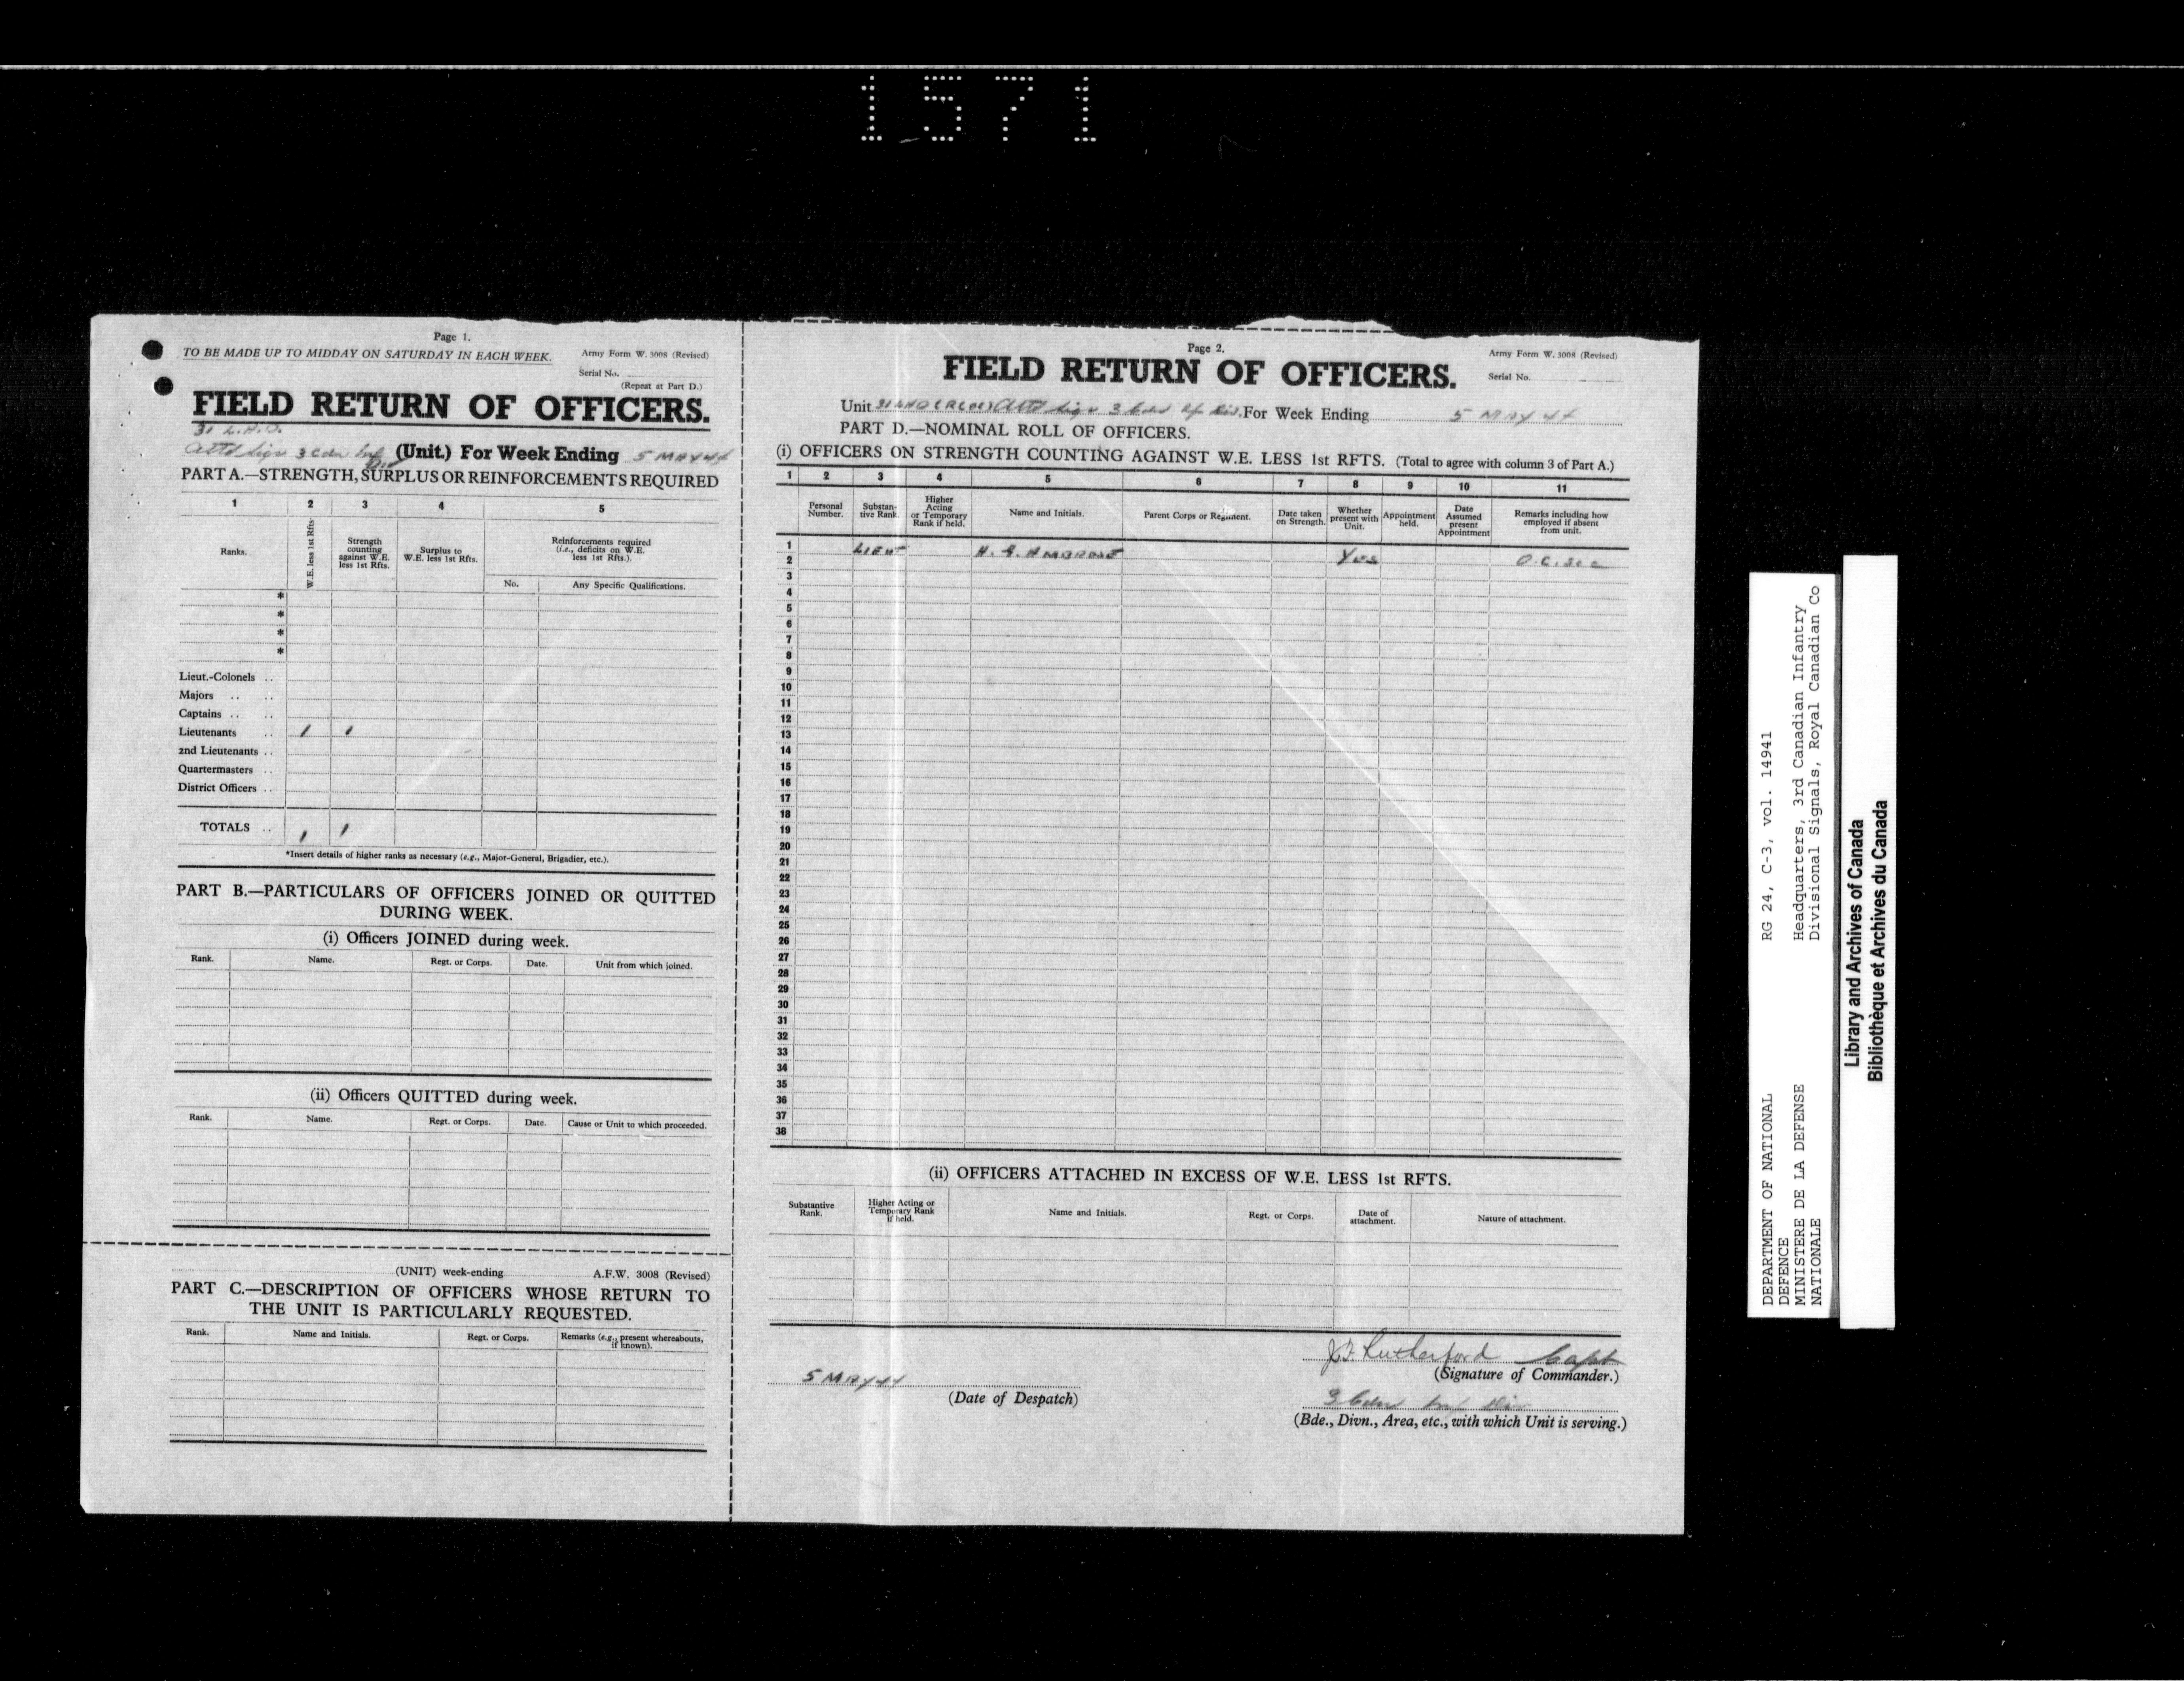 1571
Page 1.
TO BE MADE UP TO MIDDAY ON SATURDAY IN EACH WEEK.
Army Form W. 3008 (Revised)
Serial No.
(Repeat at Part D.)
FIELD RETURN OF OFFICERS.
31 L.A.D.
Attd Sigs 3 Cdn Inf Div (Unit.) For Week Ending 5 MAY 44
PART A.—STRENGTH, SURPLUS OR REINFORCEMENTS REQUIRED
1 2 3 4 5
Ranks.
W.E. less 1st Rfts.
Strength counting against W.E. less 1st Rfts.
Surplus to W.E. less 1st Rfts.
Reinforcements required (i.e., deficits on W.E. less 1st Rfts.).
No. Any Specific Qualifications.
*
*
*
*
Lieut.-Colonels ..
Majors .. ..
Captains .. ..
Lieutenants .. 1 1
2nd Lieutenants ..
Quartermasters ..
District Officers ..
TOTALS .. 1 1
*Insert details of higher ranks as necessary (e.g., Major-General, Brigadier, etc.).
PART B.—PARTICULARS OF OFFICERS JOINED OR QUITTED
DURING WEEK.
(i) Officers JOINED during week.
Rank. Name. Regt. or Corps. Date. Unit from which joined.
(ii) Officers QUITTED during week.
Rank. Name. Regt. or Corps. Date. Cause or Unit to which proceeded.
(UNIT) week-ending A.F.W. 3008 (Revised)
PART C.—DESCRIPTION OF OFFICERS WHOSE RETURN TO
THE UNIT IS PARTICULARLY REQUESTED.
Rank. Name and Initials. Regt. or Corps. Remarks (e.g., present whereabouts, if known).
Page 2.
Army Form W. 3008 (Revised)
FIELD RETURN OF OFFICERS.
Serial No.
Unit Attd Sigs 3 Cdn Div. For Week Ending 5 MAY 44
PART D.—NOMINAL ROLL OF OFFICERS.
(i) OFFICERS ON STRENGTH COUNTING AGAINST W.E. LESS 1st RFTS. (Total to agree with column 3 of Part A.)
1 2 3 4 5 6 7 8 9 10 11
Personal Number.
Substantive Rank.
Higher Acting or Temporary Rank if held.
Name and Initials.
Parent Corps or Regiment.
Date taken on Strength.
Whether present with Unit.
Appointment held.
Date Assumed present Appointment
Remarks including how employed if absent from unit.
1 LIEUT AMBROSE Yes O.C.
2
3
4
5
6
7
8
9
10
11
12
13
14
15
16
17
18
19
20
21
22
23
24
25
26
27
28
29
30
31
32
33
34
35
36
37
38
(ii) OFFICERS ATTACHED IN EXCESS OF W.E. LESS 1st RFTS.
Substantive Rank.
Higher Acting or Temporary Rank if held.
Name and Initials.
Regt. or Corps.
Date of attachment.
Nature of attachment.
5 MAY 44
(Date of Despatch)
Rutherford Capt
(Signature of Commander.)
3 Cdn Inf Div
(Bde., Divn., Area, etc., with which Unit is serving.)
DEPARTMENT OF NATIONAL
DEFENCE
MINISTERE DE LA DEFENSE
NATIONALE
RG 24, C-3, vol. 14941
Headquarters, 3rd Canadian Infantry
Divisional Signals, Royal Canadian Co
Library and Archives of Canada
Bibliothèque et Archives du Canada